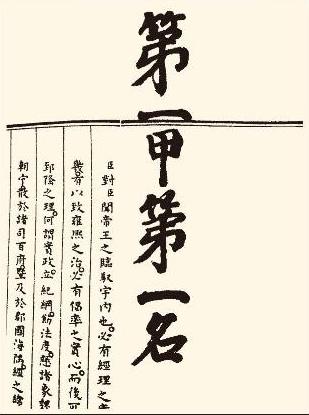 第一甲第一名
臣對臣聞帝王之臨馭宇內也。必有經理之
幾有以致雍熙之治。必有倡率之實心。而後可
郅隆之理。何謂實政。立紀綱。飭法度。懸諸象魏
朝宁散於諸司百府。暨及於郡國海隅。經之